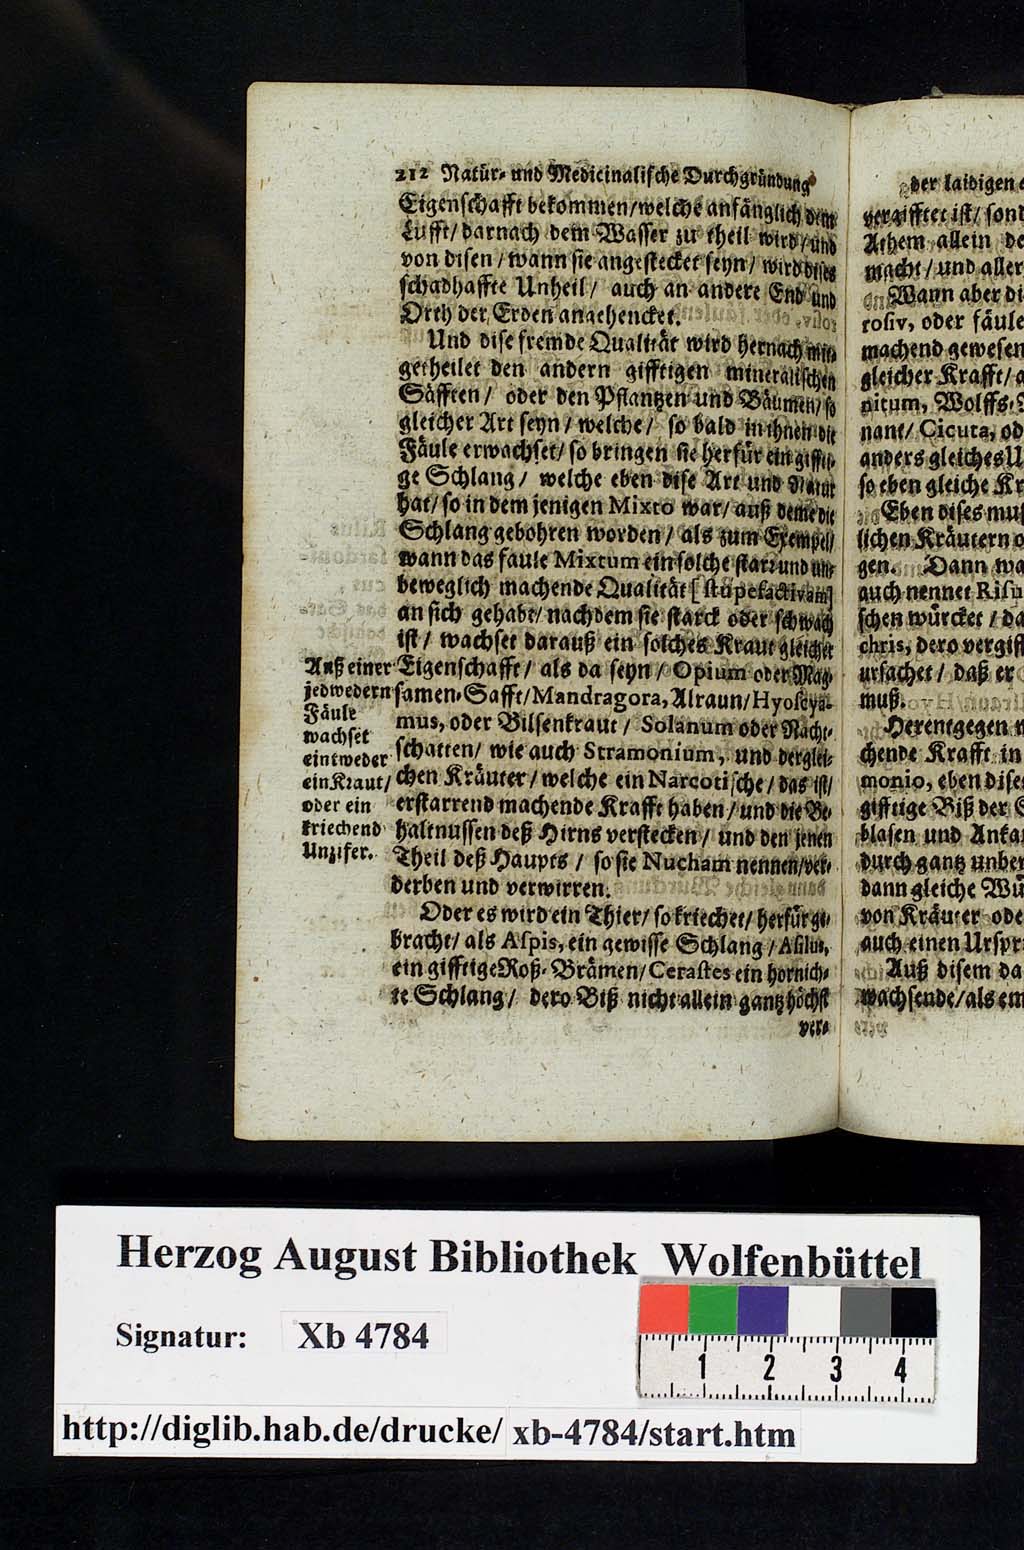 212 Natür- und Medicinalische Durchgründung
Eigenschafft bekommen/welche anfänglich dem
Lufft/ darnach dem Wasser zu theil wird/und
von disen / wann sie angestecket seyn / wird dises
schadhaffte Unheil / auch an andere End und
Orth der Erden angehencket.
Und dise fremde Qualität wird hernach mit-
getheilet den andern gifftigen mineralischen
Säfften / oder den Pflantzen und Bäumen/ so
gleicher Art seyn / welche / so bald in ihnen die
Fäule erwachset/ so bringen sie herfür ein giffti-
ge Schlang / welche eben dise Art und Natur
hat/ so in dem jenigen Mixto war/ auß deme die
Schlang gebohren worden / als zum Exempel/
wann das faule Mixtum ein solche starr und un-
beweglich machende Qualität [stupefactivam]
an sich gehabt/ nachdem sie starck oder schwach
ist / wachset darauß ein solches Kraut gleicher
Eigenschafft / als da seyn / Opium oder Mag-
samen-Safft/Mandragora, Alraun/ Hyoscya-
mus, oder Bilsenkraut / Solanum oder Nacht-
schatten/ wie auch Stramonium, und derglei-
chen Kräuter / welche ein Narcotische / das ist/
erstarrend machende Krafft haben / und die Be-
haltnussen deß Hirns verstecken / und den jenen
Theil deß Haupts / so sie Nucham nennen/ver-
derben und verwirren.
Oder es wird ein Thier/ so kriechet/ herfür ge-
bracht/ als Aspis, ein gewisse Schlang / Asilus,
ein gifftige Roß-Brämen/ Cerastes ein hornich-
te Schlang / dero Biß nicht allein gantz höchst
ver-
Auß einer
jedwedern
Fäule
wachset
eintweder
ein Kraut/
oder ein
kriechend
Unzifer.
der laidigen
vergifftet ist/ sond
Athem allein de
macht / und aller
Wann aber di
rosiv, oder fäule
machend gewesen
gleicher Krafft/ a
nitum, Wolffs-
nant/ Cicuta, od
anders gleiches U
so eben gleiche Kr
Eben dises muß
lichen Kräutern o
gen. Dann wa
auch nennet Risu
schen würcket / da
chris, dero vergift
ursachet / daß er
muß.
Herentgegen
chende Krafft in
monio, eben dise
gifftige Biß der S
blasen und Anka
durch gantz unber
dann gleiche Wü
von Kräuter ode
auch einen Urspr
Auß disem da
wachsende/ als em
Herzog August Bibliothek Wolfenbüttel
Signatur: Xb 4784
1 2 3 4
http://diglib.hab.de/drucke/ xb-4784/start.htm